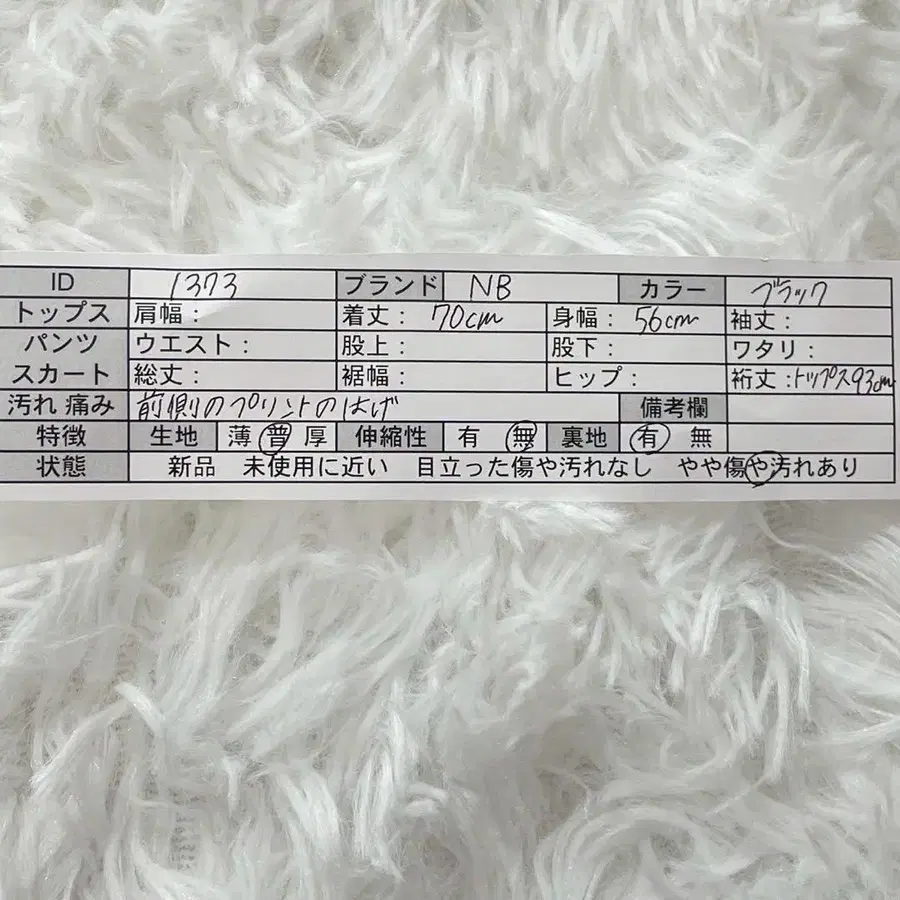 ID 1373 ブランド NB カラー ブラック
トップス 肩幅： 着丈： 70cm 身幅： 56cm 袖丈：
パンツ ウエスト： 股上： 股下： ワタリ：
スカート 総丈： 裾幅： ヒップ： 裄丈：トップス93cm
汚れ 痛み 前側のプリントのはげ 備考欄
特徴 生地 薄 普 厚 伸縮性 有 無 裏地 有 無
状態 新品 未使用に近い 目立った傷や汚れなし やや傷や汚れあり